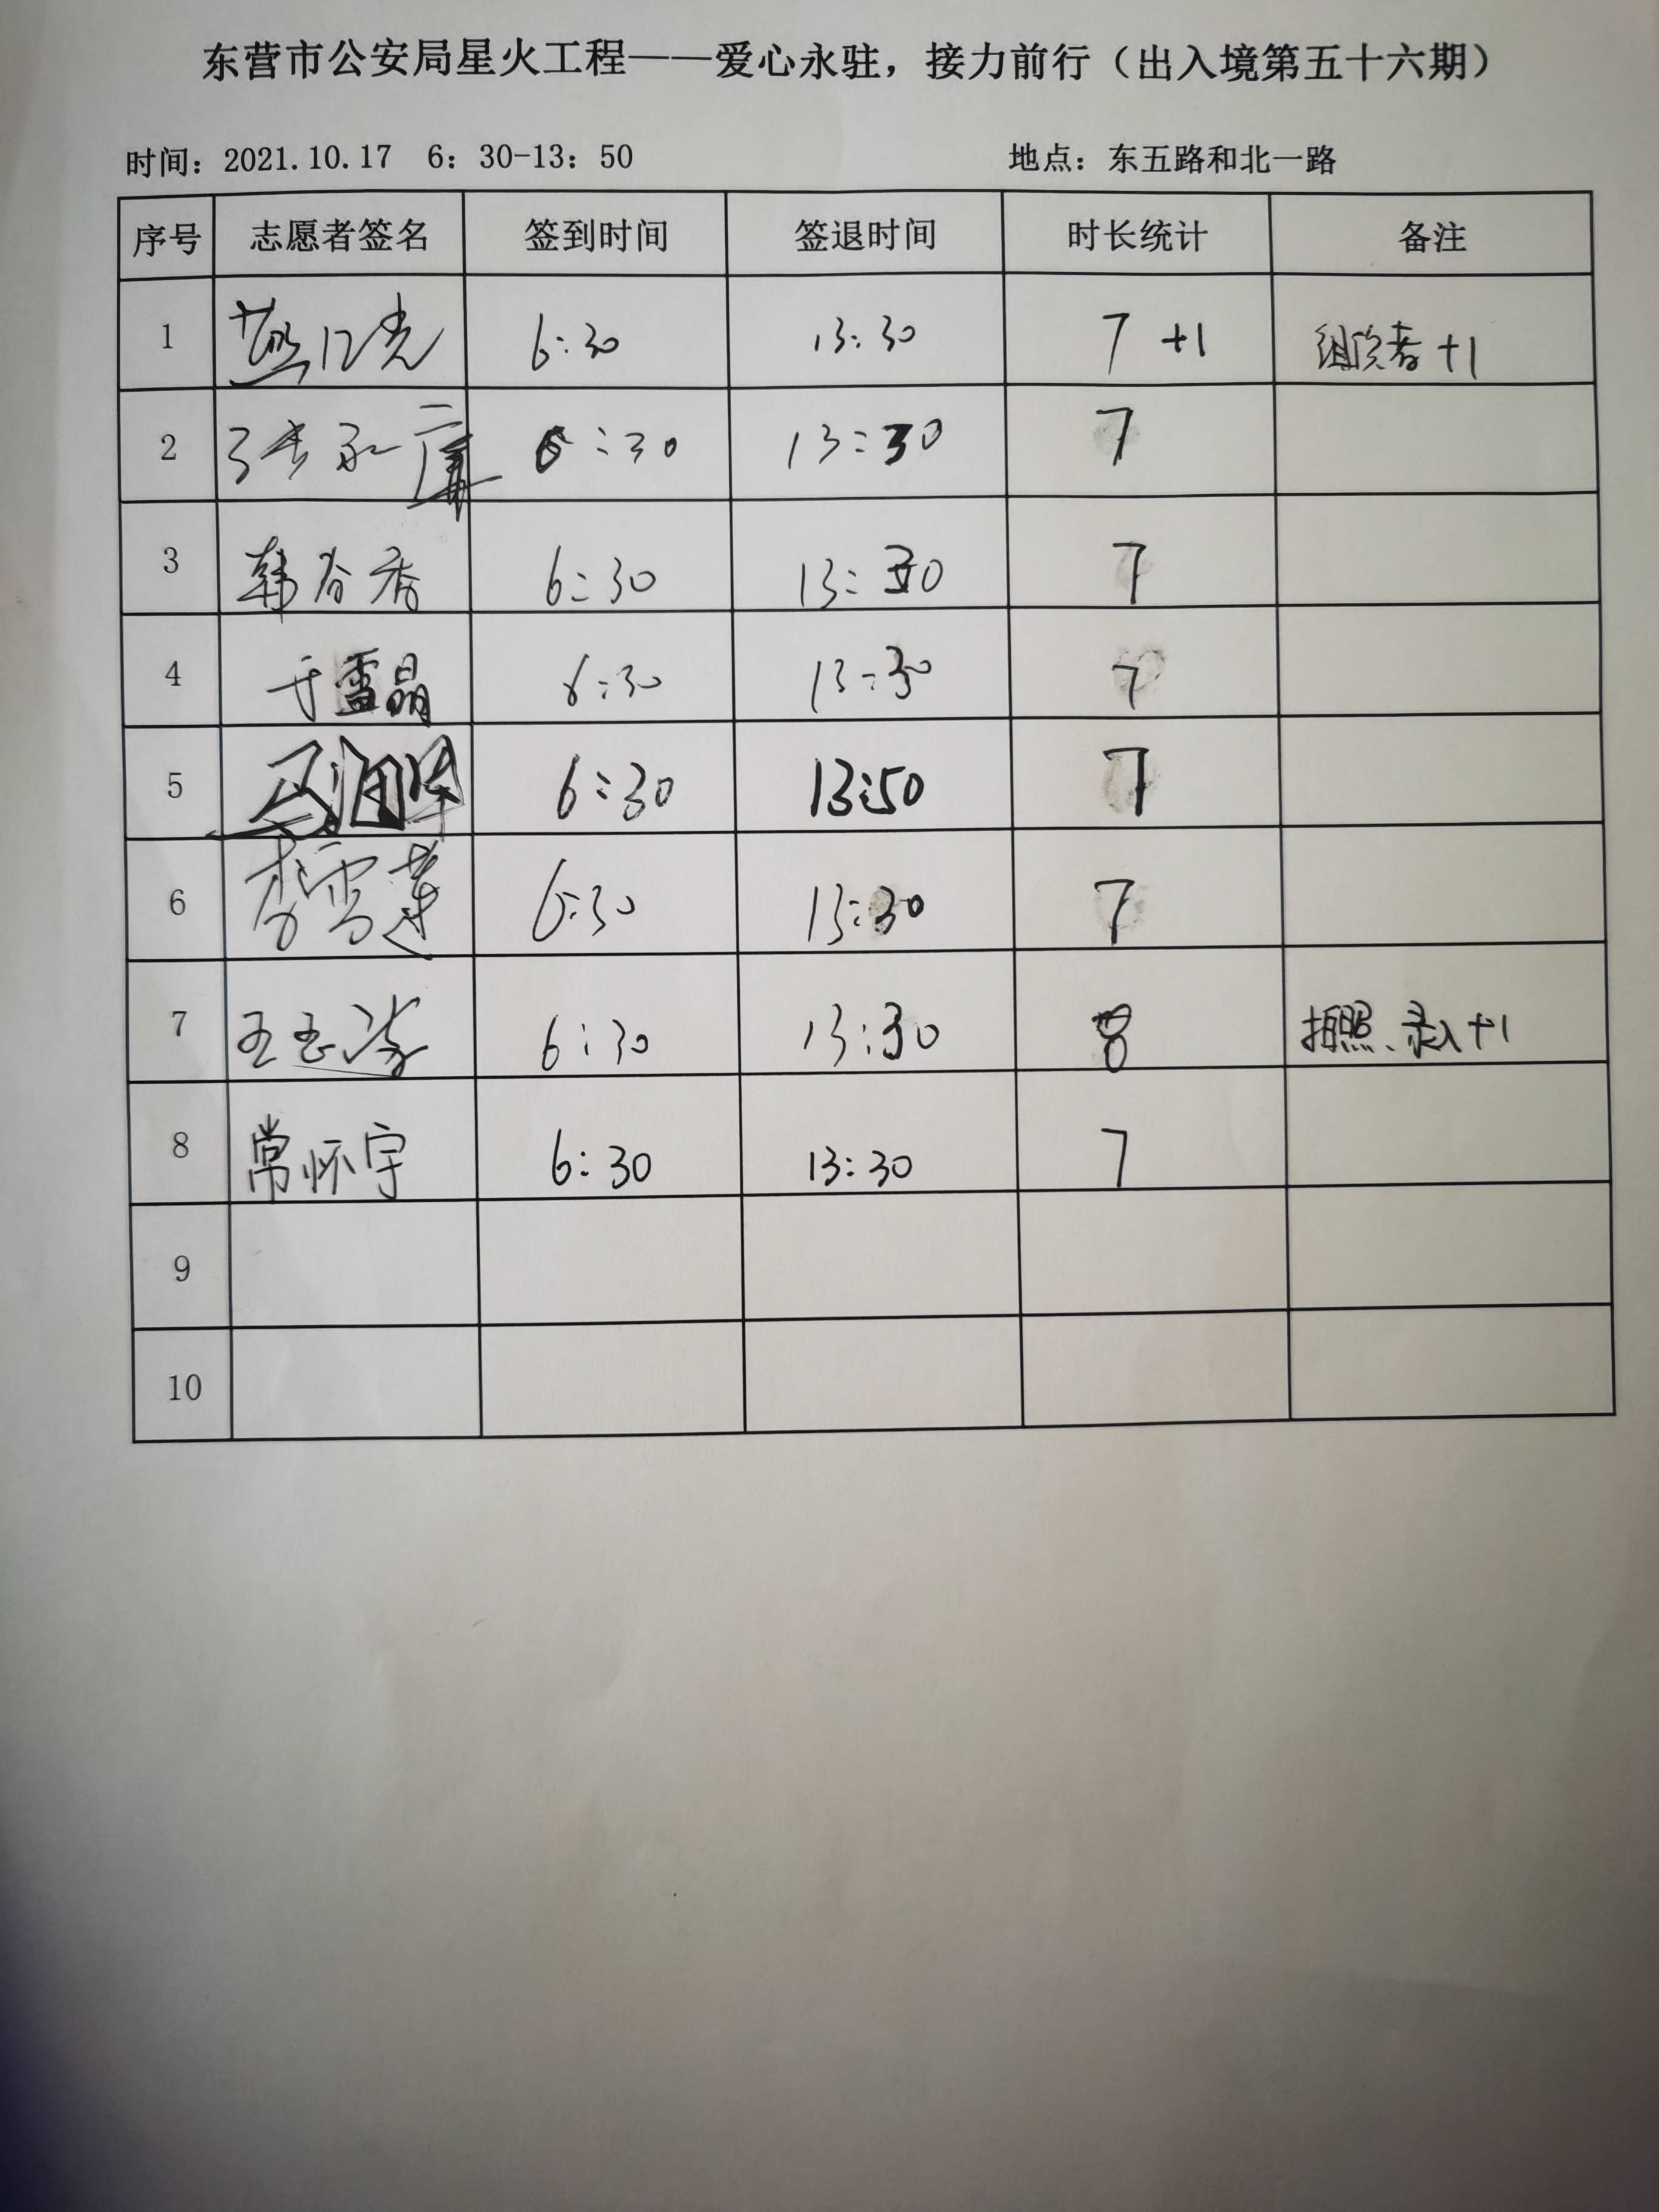 东营市公安局星火工程——爱心永驻，接力前行（出入境第五十六期）
时间：2021.10.17 6：30-13：50 地点：东五路和北一路
序号 志愿者签名 签到时间 签退时间 时长统计 备注
1 6:30 13:30 7 +1 组织者+1
2 张 6:30 13:30 7
3 韩春香 6:30 13:30 7
4 于雪晶 6:30 13:30 7
5 6:30 13:50 7
6 李雪莲 6:30 13:30 7
7 王玉 6:30 13:30 8 拍照、录入+1
8 常怀宇 6:30 13:30 7
9
10